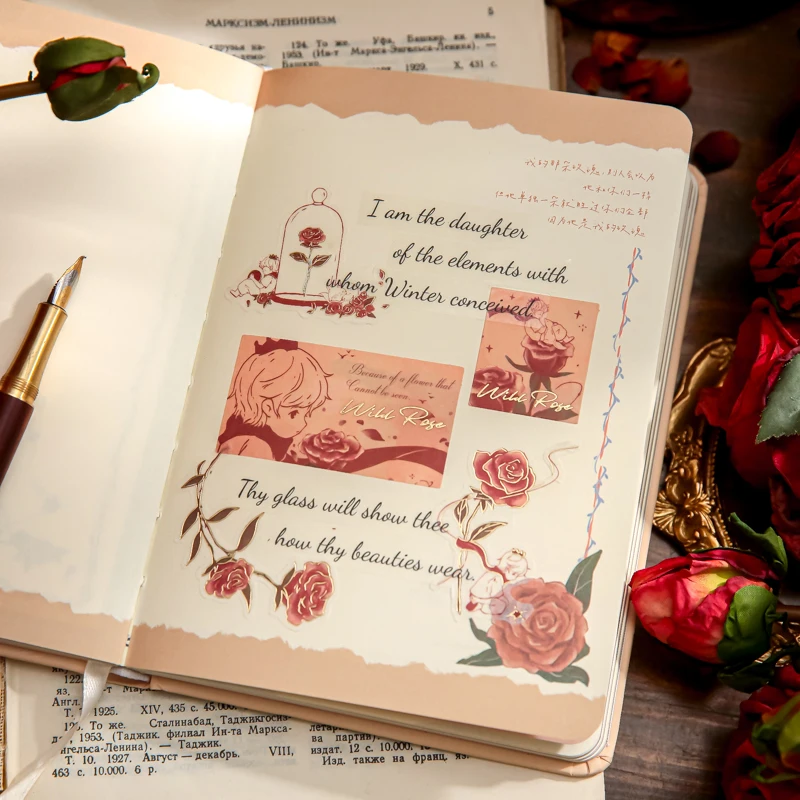 МАРКСИЗМ-ЛЕНИНИЗМ
5
124. То же. Уфа, Башкир. кн. изд.
1953. (Ин-т Маркса-Энгельса-Ленина). —
Башкир.
1929. X, 431 с.
我的那朵玫瑰,别人会以为
她和你们一样
但她单独一朵就胜过你们全部
因为她是我的玫瑰
I am the daughter
of the elements with
whom Winter conceived
Because of a flower that
Cannot be seen.
Wild Rose
Wild Rose
Thy glass will show thee
how thy beauties wear.
122.
яз.
Англ.
Т. 1925. XIV, 435 с. 45.000.
То же. Сталинабад, Таджикгосиз-
1953. (Таджик. филиал Ин-та Маркса-
Энгельса-Ленина). — Таджик.
Т. 10. 1927. Август — декабрь. VIII,
463 с. 10.000. 6 р.
ва партии)
издат. 12 с. 10.000,
Изд. также на франц. яз.